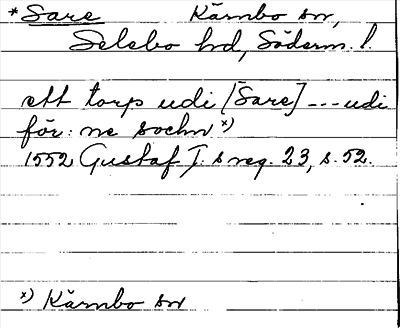 *Sare Kärnbo sn,
Selebo hd, Söderm. l.
ett torp udi [Sare] --- udi
för:ne sochn x)
1552 Gustaf I:s reg. 23, s. 52.
x) Kärnbo sn